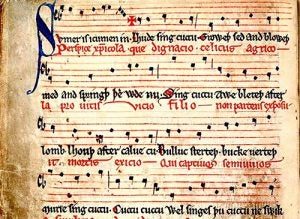 Svmer is icumen in Lhude sing cuccu Groweþ sed and bloweþ
Perspice xpicola que dignacio celicus agrico
med and springþ þe wde nu Sing cuccu Awe bleteþ after
la pro uitis vicio filio non parcens exposu
lomb lhouþ after calue cu Bulluc sterteþ bucke uerteþ
it mortis exicio Qui captiuos semiuiuos
murie sing cuccu Cuccu cuccu Wel singes þu cuccu ne swik